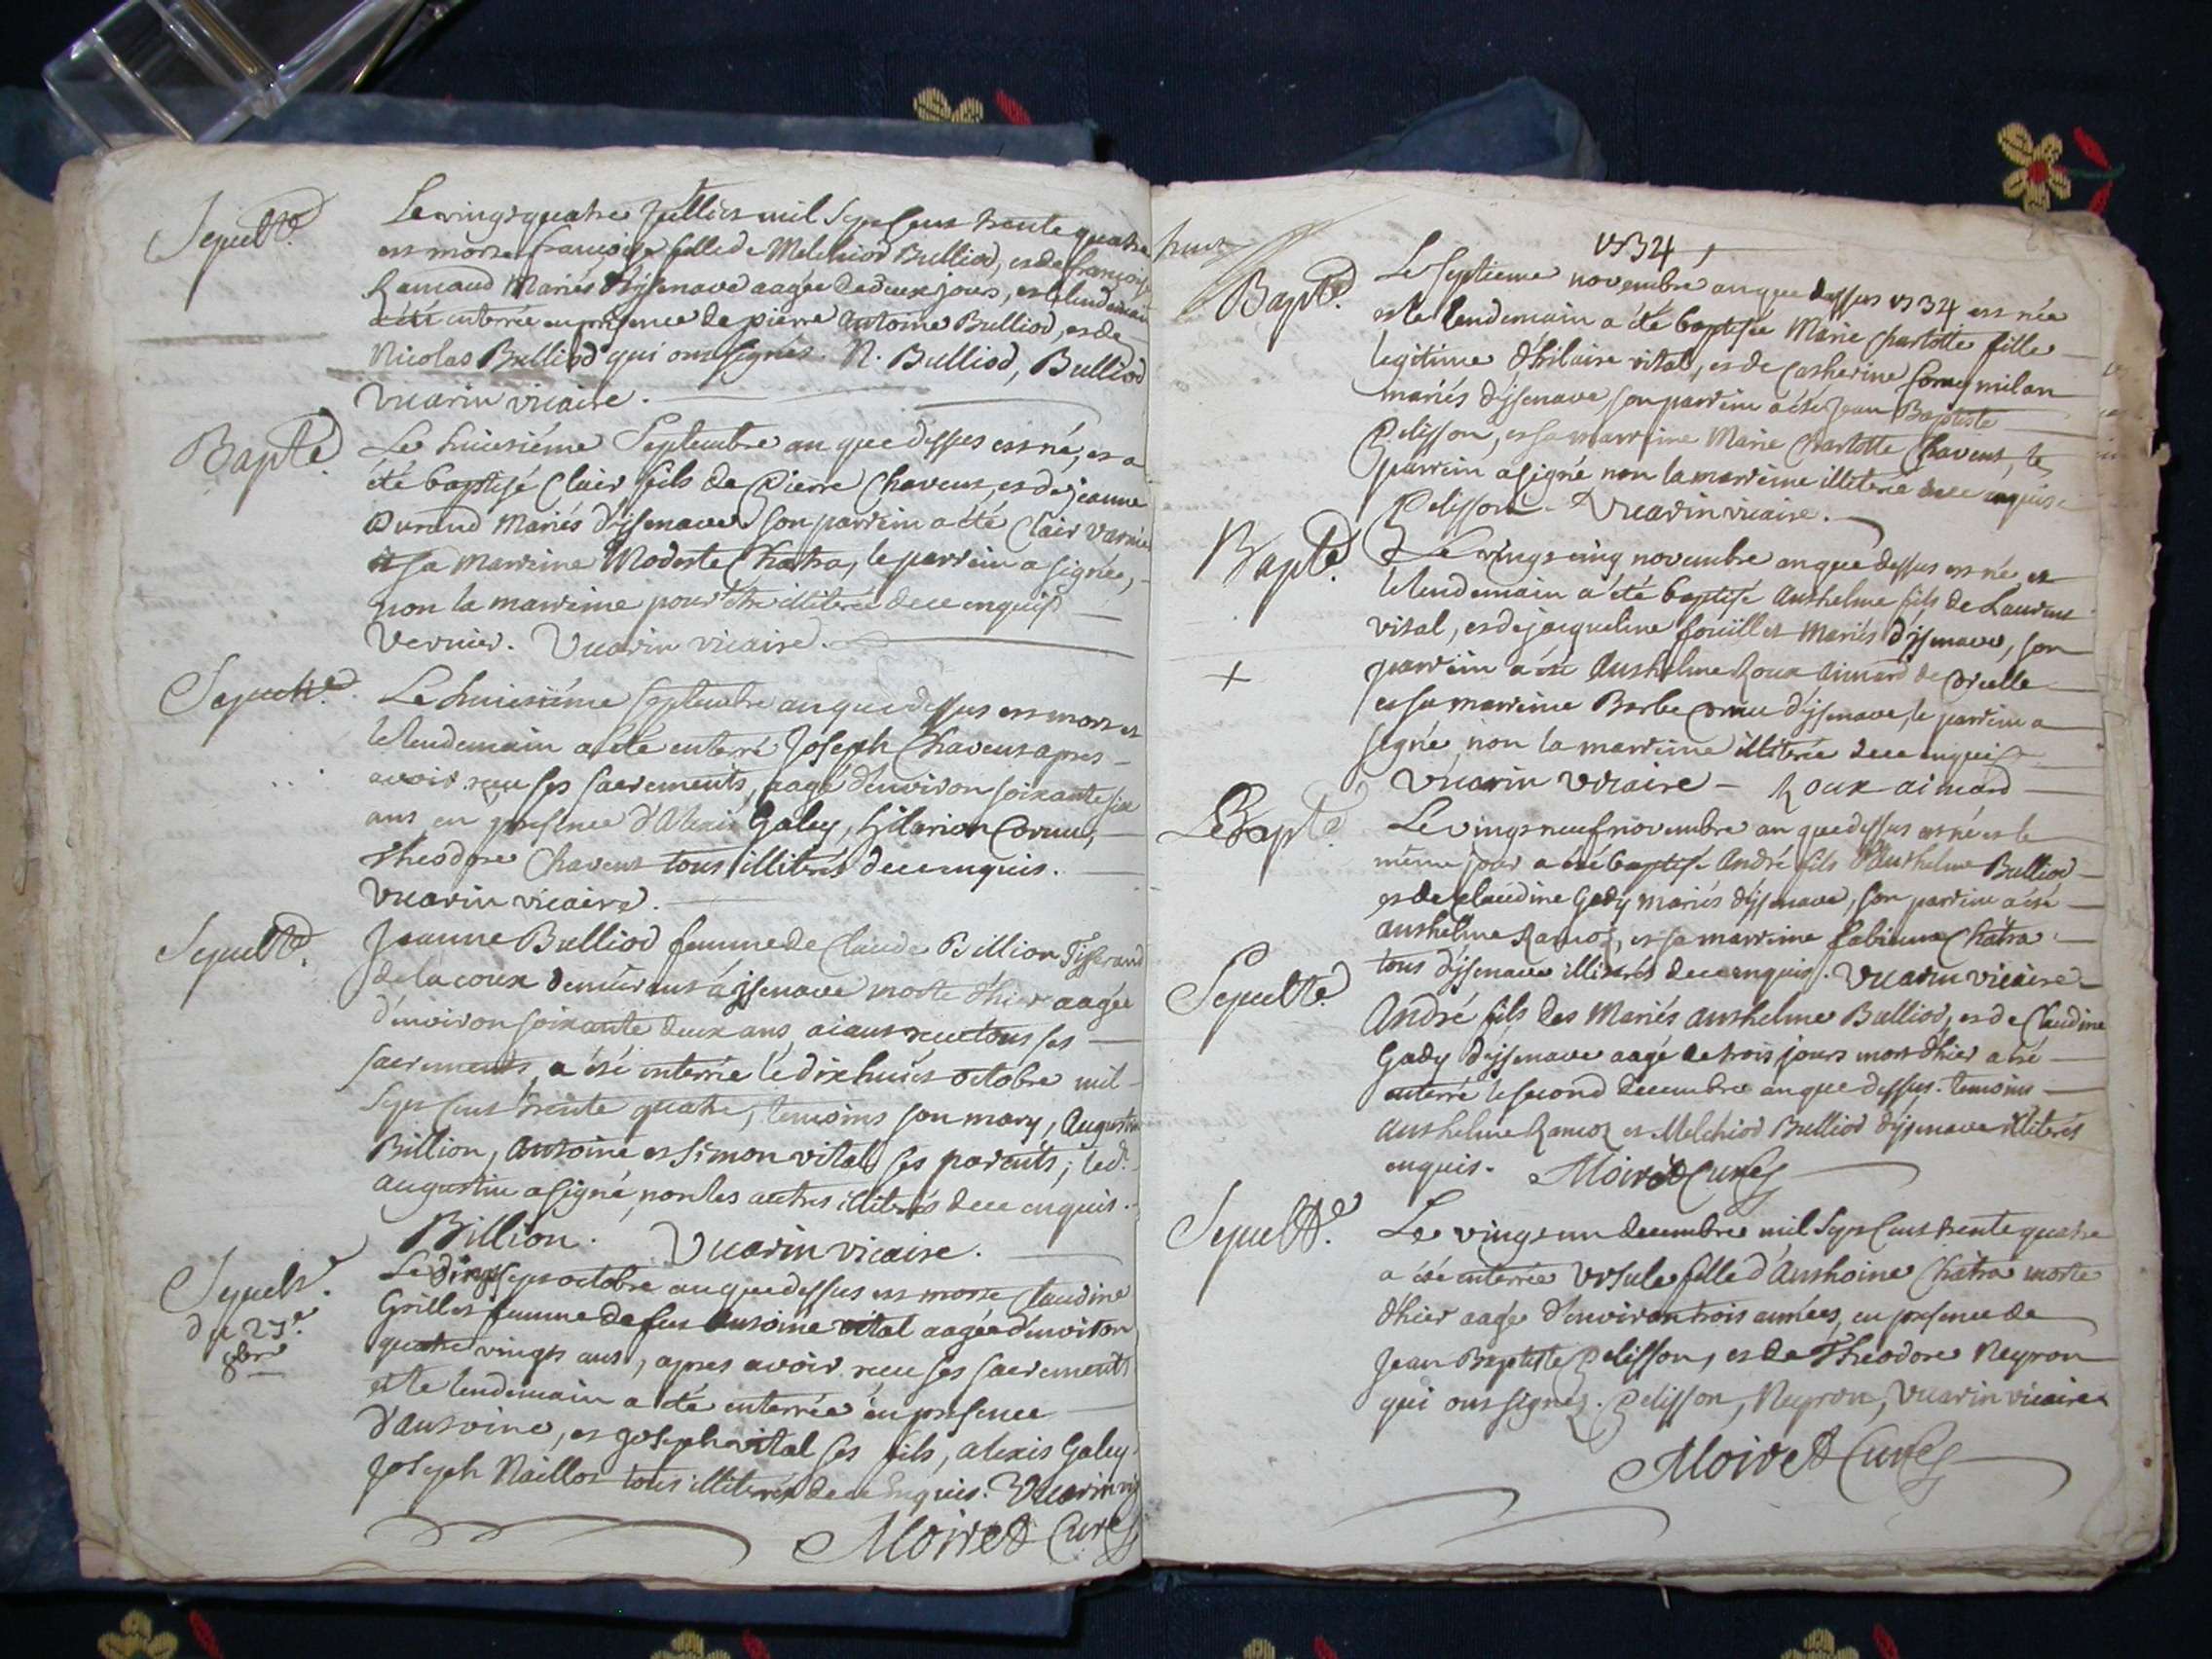 Sepult.e
Le vingt quatre Juillet mil Sept Cens trente quatre
est morte françoise fille de Melchior Bulliod, et de françoise
Ramaud Mariés d'jsenave aagée de deux jours, et lendemain
a été enterrée en presence de pierre antoine Bulliod, et de
Nicolas Bulliod qui ont signés. N. Bulliod, Bulliod
Vuarin vicaire.
Bapt.e
Le huitiéme Septembre an que dessus est né, et a
été baptisé Clair fils de Pierre Chavent, et de jeanne
Durand Mariés d'jsenave son parrein a été Clair
et sa Marreine Modeste Chatra, le parrein a signé,
non la marreine pour être illiterée de ce enquis
Vernier. Vuarin vicaire.
Sepult.e
Le huitiéme septembre an que dessus est mort et
le lendemain a été enterré Joseph Chavent apres
avoir receu ses sacrements, aagé d'environ soixante six
ans en presence d'Alexis Galey, hilarion Cornu,
Theodore Chavent tous illiterés de ce enquis.
Vuarin vicaire.
Sepult.e
Jeanne Bulliod femme de Claude Billion Tisserand
de la coux demeurant á jsenave morte d'hier aagée
d'environ soixante deux ans, aiant receu tous ses
sacrements, a été enterrée le dix huict octobre mil
Sept Cens trente quatre, temoins son mary, Augustin
Billion, Antoine et Simon vital ses parents, led.
augustin a signé, non les autres illiterés de ce enquis.
Billion. Vuarin vicaire.
Sepult.e
du 27.e
8bre
Le vingt sept octobre an que dessus est morte Claudine
Grillet femme de feu Antoine vital aagée d'environ
quatre vingts ans, apres avoir receu ses sacrements
et le lendemain a été enterrée en presence
d'Antoine, et joseph vital ses fils, alexis Galey
Joseph Naillot tous illiterés de ce Enquis. Vuarin vic
Moiret Curé
1734
Bapt.e
Le septieme novembre an que dessus 1734 est née
et le lendemain a été baptisée Marie Charlotte fille
legitime d'hilaire vital, et de Catherine milan
mariés d'jsenave, son parrein a été Jean Baptiste
Pelisson, et sa marreine Marie Charlotte Chavent, le
parrein a signé non la marreine illiterée de ce enquise
Pelisson. Vuarin vicaire.
Bapt.e
Le vingt cinq novembre an que dessus est né et
le lendemain a été baptisé Anthelme fils de Laurent
vital, et de jacqueline foüillet Mariés d'jsenave, son
+
parrein a été Anthelme Roux aimard de Corcelle
et sa marreine Barbe Cornu d'jsenave, le parrein a
signé non la marreine illiterée de ce enquis
Vuarin Vicaire - Roux aimard
Bapt.e
Le vingt neuf novembre an que dessus est né et le
même jour a été baptisé André fils d'Anthelme Bulliod
et de Claudine Gady mariés d'jsenave, son parrein a été
anthelme Ramoz, et sa marreine fabienne Chatra
tous d'jsenave illiterés de ce enquis. Vuarin vicaire
Sepult.e
André fils des Mariés anthelme Bulliod, et de Claudine
Gady d'jsenave aagé de trois jours mort d'hier a été
enterré le second decembre an que dessus. temoins
anthelme Ramoz et Melchior Bulliod d'jsenave illiterés
enquis. Moiret Curé
Sepult.e
Le vingt un decembre mil Sept Cens trente quatre
a été enterrée Ursule fille d'Anthoine Chatra morte
d'hier aagée d'environ trois années, en presence de
Jean Baptiste Pelisson, et de Theodore Neyron
qui ont signez. Pelisson, Neyron, Vuarin vicaire
Moiret Curé